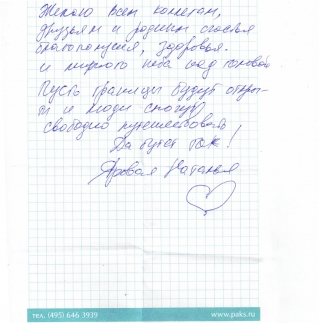 Желаю всем коллегам,
друзьям и родным счастья
благополучия, здоровья.
и мирного неба над головой
Пусть границы будут откры-
ты и люди смогут
свободно путешествовать
Да будет так!
Яровая Наталья
тел. (495) 646 3939
www.paks.ru